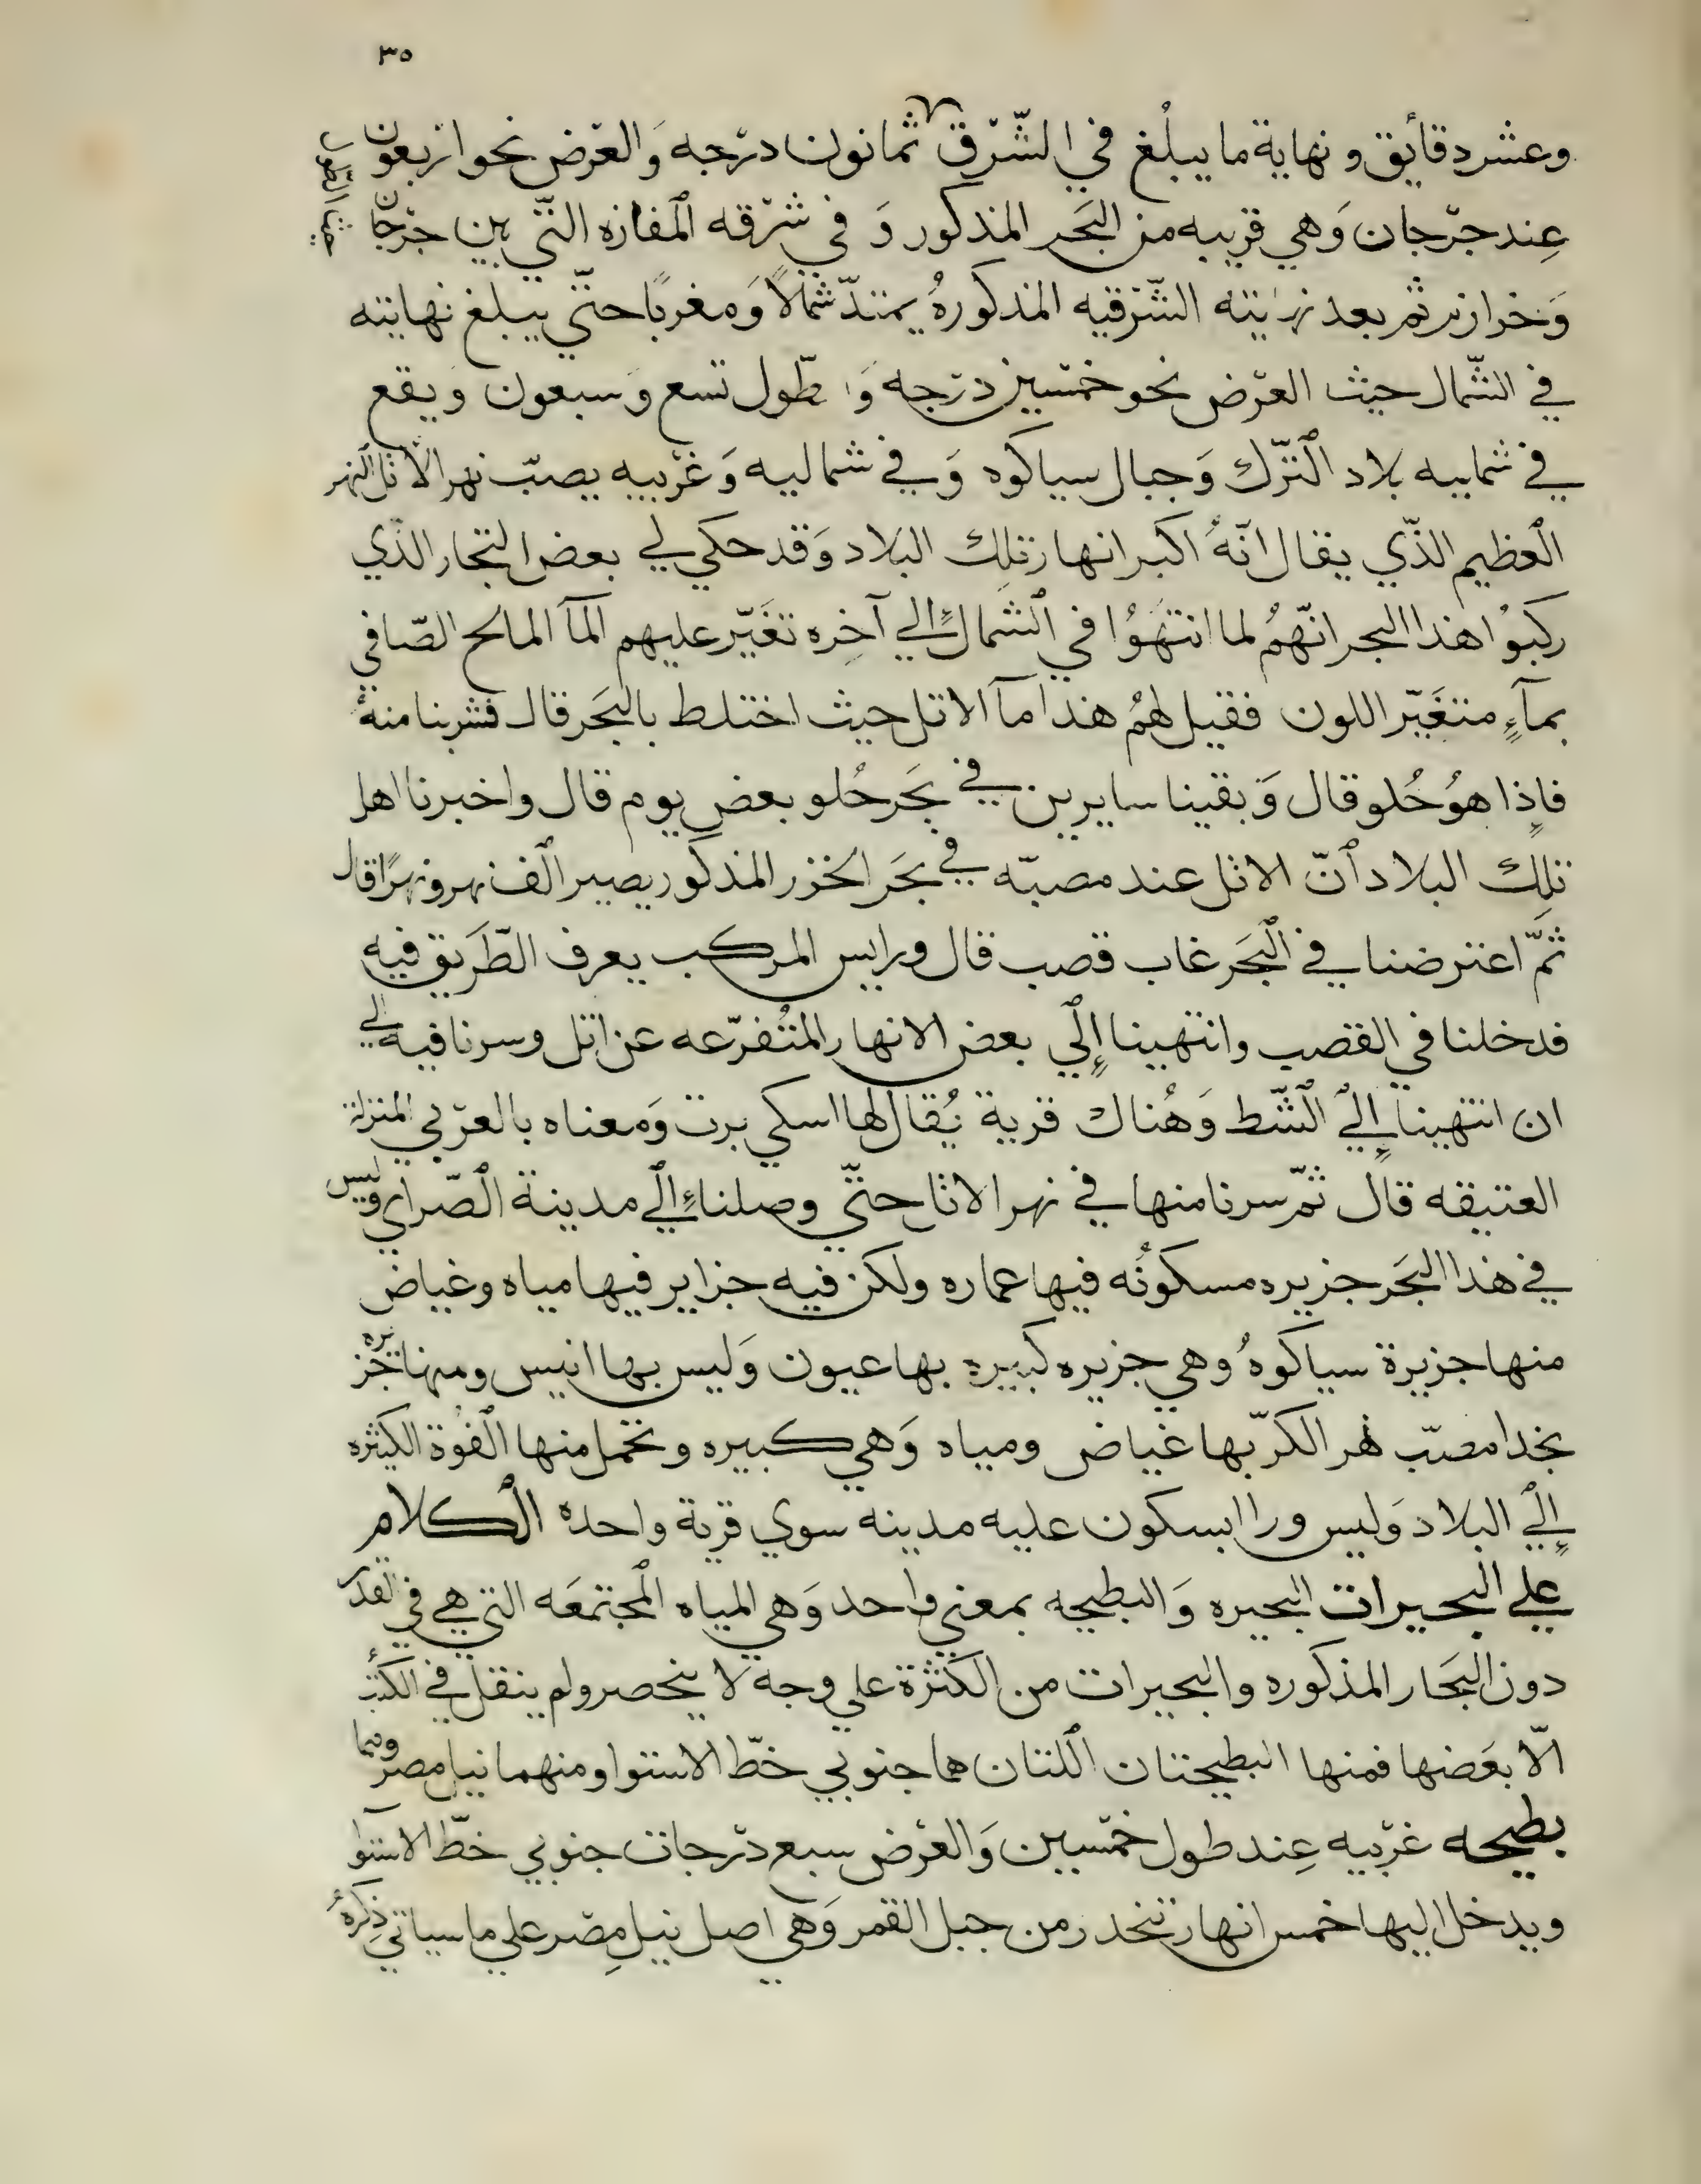 ٣٥
وعشر دقأيق ونهاية ما يبلُغ في الشّرْق ثمانون درْجه وَالعرْض نحو ارْبعون
عِند جرْجان وَهي قرِيبه من البَحر المذكور وَ في شرْقه المفازه التّي بين جرْجان
وَخوارزم ثمّ بعد نهايته الشّرْقيه المذكورهُ يمتدّ شمالًا وَمغربًا حتّي يبلغ نهايته
في الشّمال حيث العرْض نحو خمْسين درْجه وَ طّول تسع وَسبعون وَيقع
في شماليه بلاد الترّك وَجبال سياكوه وَفي شماليه وَغرْبيه يصبّ نهر الاتل النهر
العظيم الذّي يقال انّهُ اكبر انهار تلِك البلاد وَقد حكي لي بعض التجار الذّي
ركبوُا هذا البحر انّهُم لما انتهَوُا في الشمال إلي آخِره تغَيّر عليهم المآ المالح الصّافي
بمآءٍ متغَيّر اللون فقيل لهُمُ هذا مآ الاتل حيث اختلط بالبَحر قال فشربنا منهُ
فاِذا هوُ حُلو قال وَبقينا سايرين في بَحر حُلو بعض يوم قال واخبرنا اهل
تلِك البلاد أنّ الاتل عند مصبّه في بحَر الخزر المذكور يصير الف نهر ونهرًا قال
ثمّ اعترضنا في البَحر غاب قصب قال ورايس المركب يعرف الطّرَيق فيه
فدخلنا في القصب وانتهينا إلي بعض الانهار المتُفرّعه عن اتل وسرنا فيه الي
ان انتهينا إلي الشّط وَهُناك قرية يُقال لها اسكي برت وَمعناه بالعرْبي المنزلة
العتيقه قال ثمّ سرنا منها في نهر الاتل حتّي وصلنا إلي مدينة الصّراي وليس
في هذا البَحر جزيره مسكونُه فيها عماره ولكن فيه جزاير فيها مياه وغياض
منها جزيرة سياكوهُ وهي جزيره كبيره بها عيون وَليس بها انيس ومنها جزيره
بخدا مصبّ نهر الكرّ بها غياض ومياه وَهي كبيره وتحمل منها الفُوة الكثيره
إلي البلاد وَليس ورا ابسكون عليه مدينه سوي قرية واحده الكلام
علي البحيرات البحيره وَالبطيحه بمعني واحد وَهي المياه المجتمعَه التي هي في القدر
دون البَحار المذكوره والبحيرات من الكثرة علي وجه لا ينحصر ولم ينقل في الكتب
الّا بعَضها فمنها البطيحتان اللتان هما جنوبي خطّ الاستوا ومنهما نيل مصر وهما
بطيحه غرْبيه عِند طول خمْسين وَالعرْض سبع درْجات جنوبي خطّ الاستوآ
ويدخل اليها خمس انهار تنحدر من جبل القمر وَهي اصل نيل مِصْر علي ما سياتي ذِكرهُ